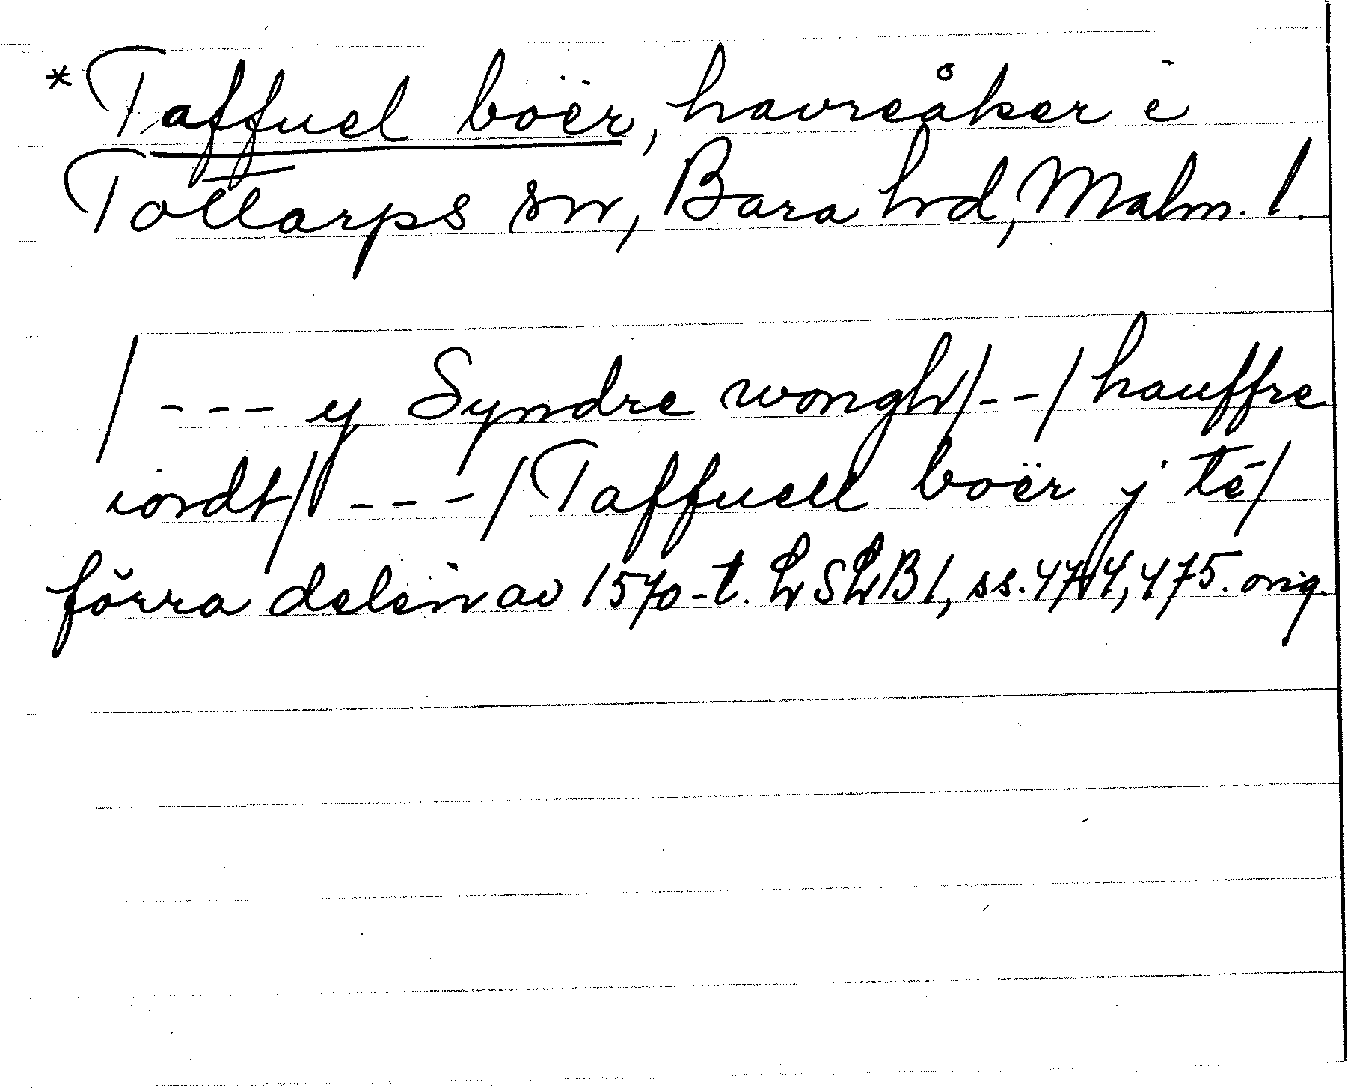 *Taffuel boër, havreåker i
Tottarps sn, Bara hd, Malm. l.
/--- y Syndre wongh/--/ hauffre
iordt/ ---/ Taffuell boër j té/
förra delen av 1570-t. LSLB1, ss. 474, 475. orig.